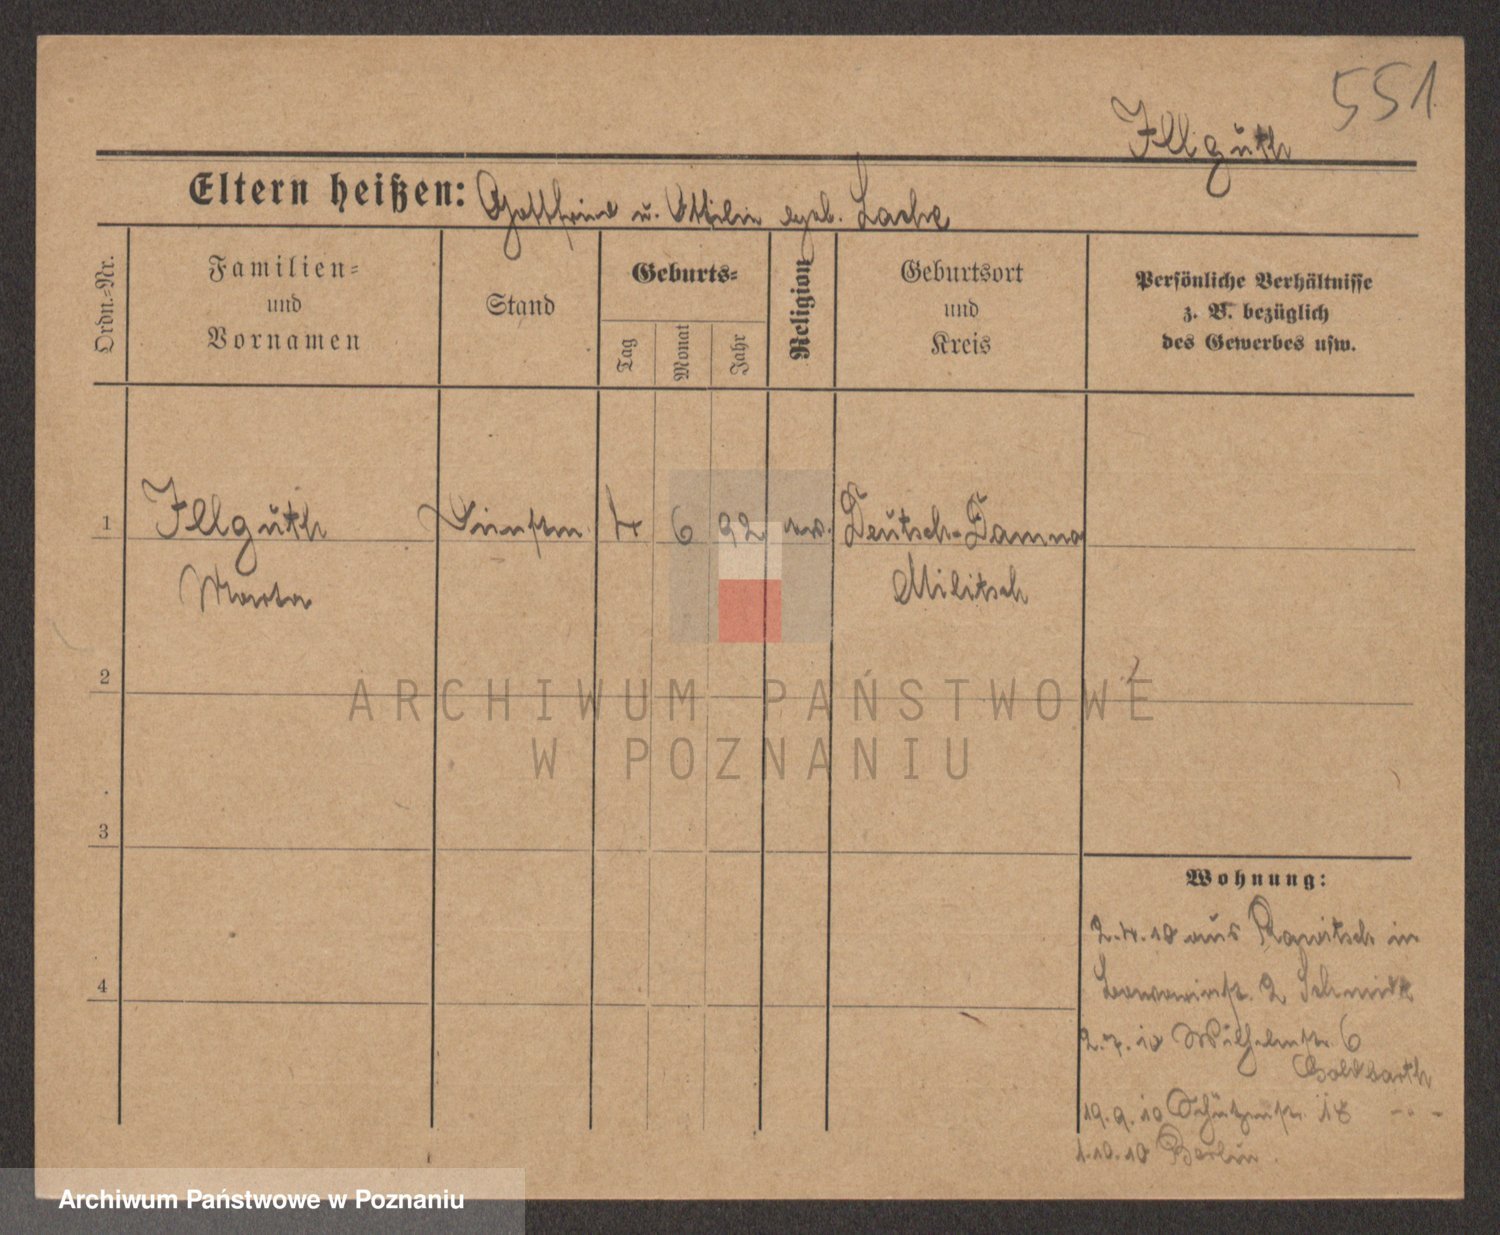 551
Illguth
Eltern heißen: Gottfried u. Ottilie geb. Lache
Ordn.-Nr.
Familien-
und
Vornamen
Stand
Geburts-
Tag
Monat
Jahr
Religion
Geburtsort
und
Kreis
Persönliche Verhältnisse
z. B. bezüglich
des Gewerbes usw.
1
Illguth
Marta
4
6
92
ev.
Deutsch-Damno
Militsch
2
ARCHIWUM PAŃSTWOWE
W POZNANIU
3
4
Wohnung:
2.4.10 aus Rawitsch in
2 Schmidt
2.7.10 Wilhelmstr. 6
Goldbarth
19.9.10 Schützenstr. 18 - " -
1.10.10 Berlin.
Archiwum Państwowe w Poznaniu